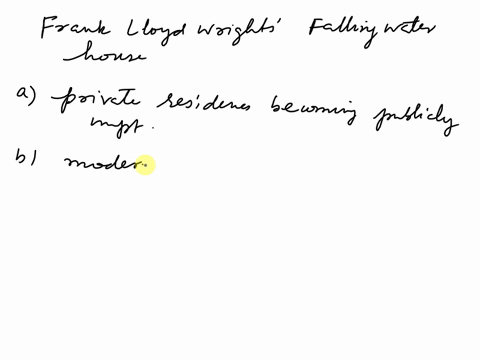 Frank Lloyd wrights' Falling water
house
a) private residenes becoming publicly
impt.
b) moder